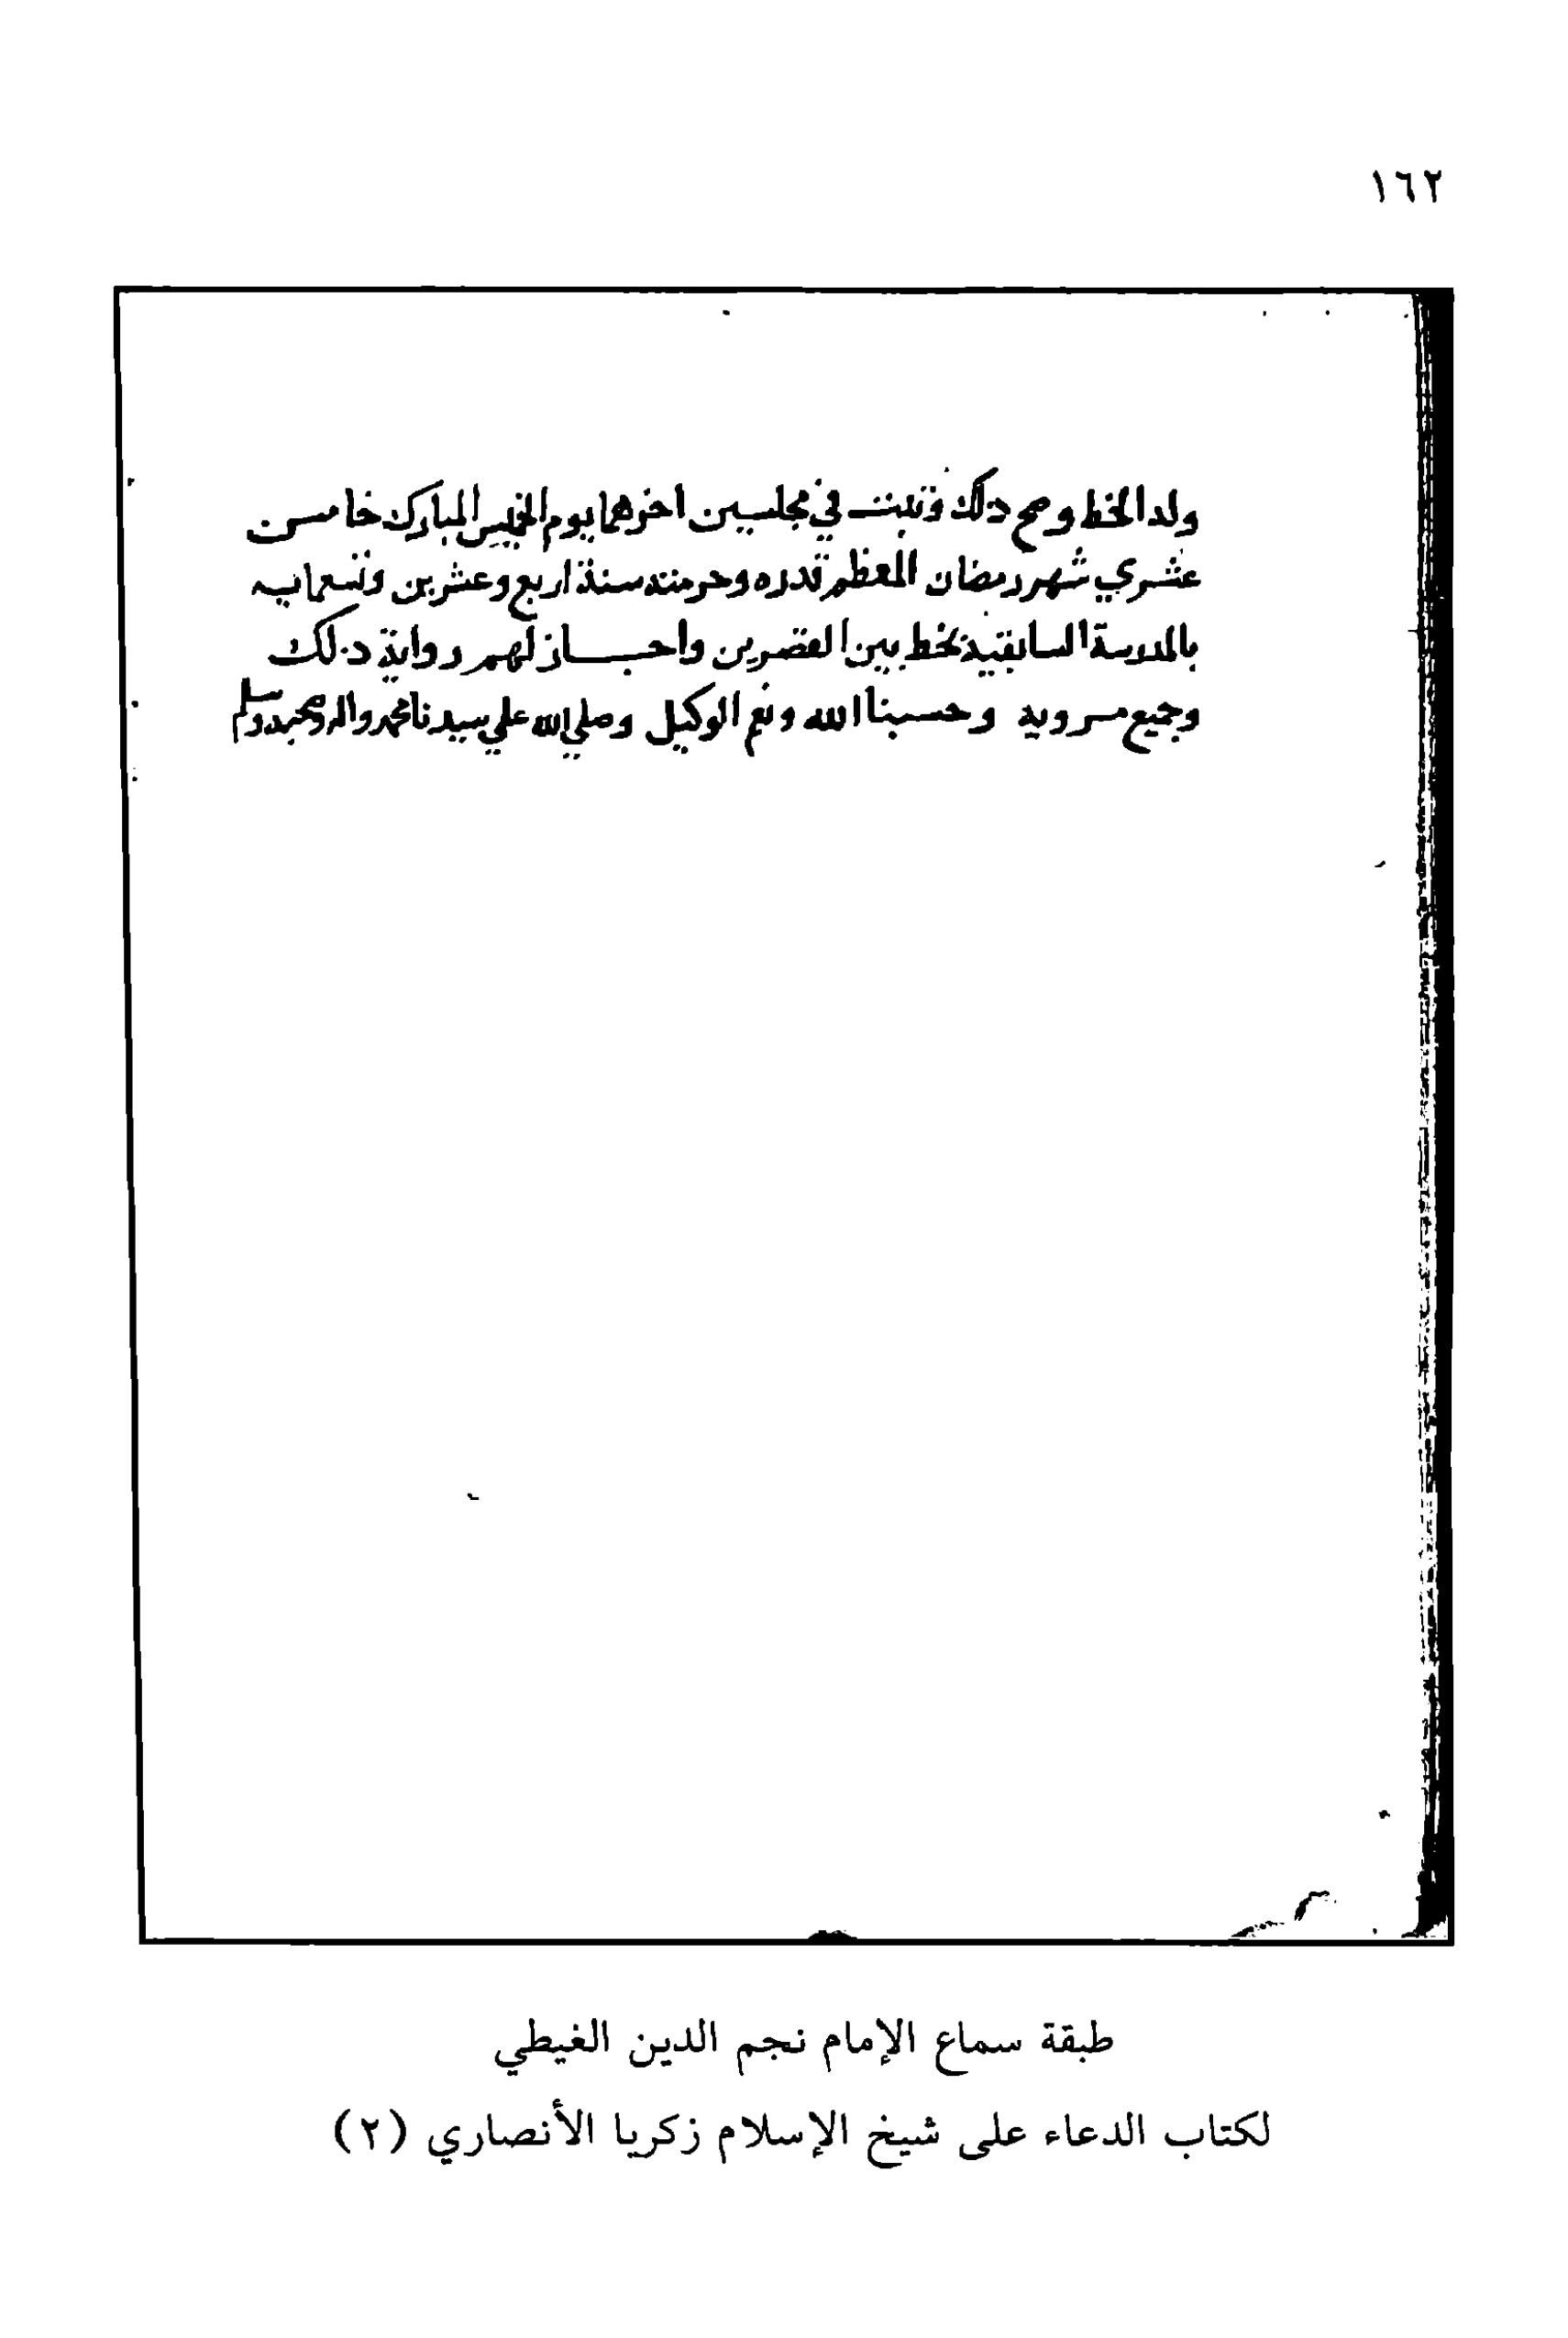 ١٦٢
وله الخط وصح ذلك وثبت في مجلسين اخرهما يوم الخميس المبارك خامس
عشري شهر رمضان المعظم قدره وحرمته سنة اربع وعشرين وتسعمايه
بالمدرسة السابقية بخط بين القصرين واجاز لهم رواية ذلك
وجميع مرويه وحسبنا الله ونعم الوكيل وصلي الله علي سيدنا محمد واله وصحبه وسلم
طبقة سماع الإمام نجم الدين الغيطي
لكتاب الدعاء على شيخ الإسلام زكريا الأنصاري (٢)